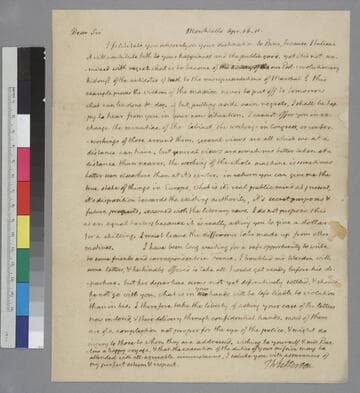 Dear Sir Monticello Apr. 16. 11.
I felicitate you sincerely on your destination to Paris, because I believe
it will contribute both to your happiness and the public good. yet it is not un-
mixed with regret. what is to become of our Post-revolutionary
history? of the antidotes of truth to the misrepresentations of Marshall? this
example proves the wisdom of the maxim never to put off to tomorrow
what can be done to-day. but putting aside vain regrets, I shall be hap-
py to hear from you in your new situation. I cannot offer you in ex-
change the minutiae of the Cabinet, the workings in Congress, or under-
-workings of those around them. general views are all which we at a
distance can have. but general views are sometimes better taken at a
distance than nearer. the working of the whole machine is sometimes
better seen elsewhere than at it's center. in return you can give me the
true state of things in Europe, what is it's real public mind at present,
it's disposition towards the existing authority, it's secret purposes &
future prospects, seasoned with the literary news. I do not propose this
as an equal barter, because it is really asking you to give a dollar
for a shilling. I must leave the difference to be made up from other
motives. I have been long waiting for a safe opportunity to write
to some friends and correspondents in France. I troubled mr Warden with
some letters, & he kindly offered to take all I could get ready before his de-
-parture. but his departure seems not yet definitively settled, & should
he not go with you, what is in his hands will be less liable to violation
than in your. I therefore take the liberty of asking your care of the letters
now inclosed, & their delivery through confidential hands. most of them
are of a complexion not proper for the eye of the police, & might do
injury to those to whom they are addressed. wishing to yourself & mrs Bar-
low a happy voyage, & that the execution of the duties of your mission may be
attended with all agreeable circumstances, I salute you with assurances of
my perfect esteem & respect. Th: Jefferson